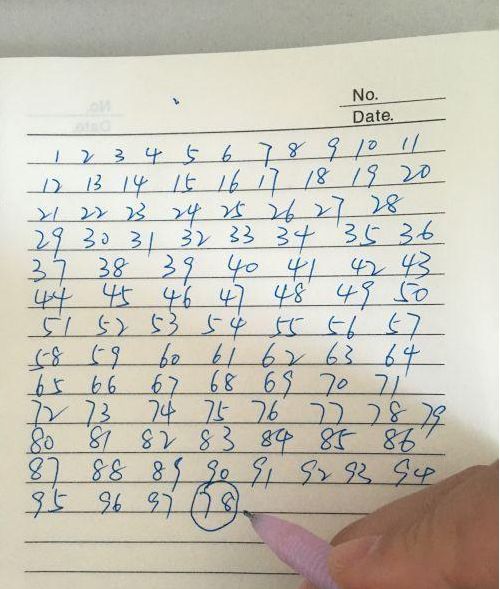 No.
Date.
1 2 3 4 5 6 7 8 9 10 11
12 13 14 15 16 17 18 19 20
21 22 23 24 25 26 27 28
29 30 31 32 33 34 35 36
37 38 39 40 41 42 43
44 45 46 47 48 49 50
51 52 53 54 55 56 57
58 59 60 61 62 63 64
65 66 67 68 69 70 71
72 73 74 75 76 77 78 79
80 81 82 83 84 85 86
87 88 89 90 91 92 93 94
95 96 97 78